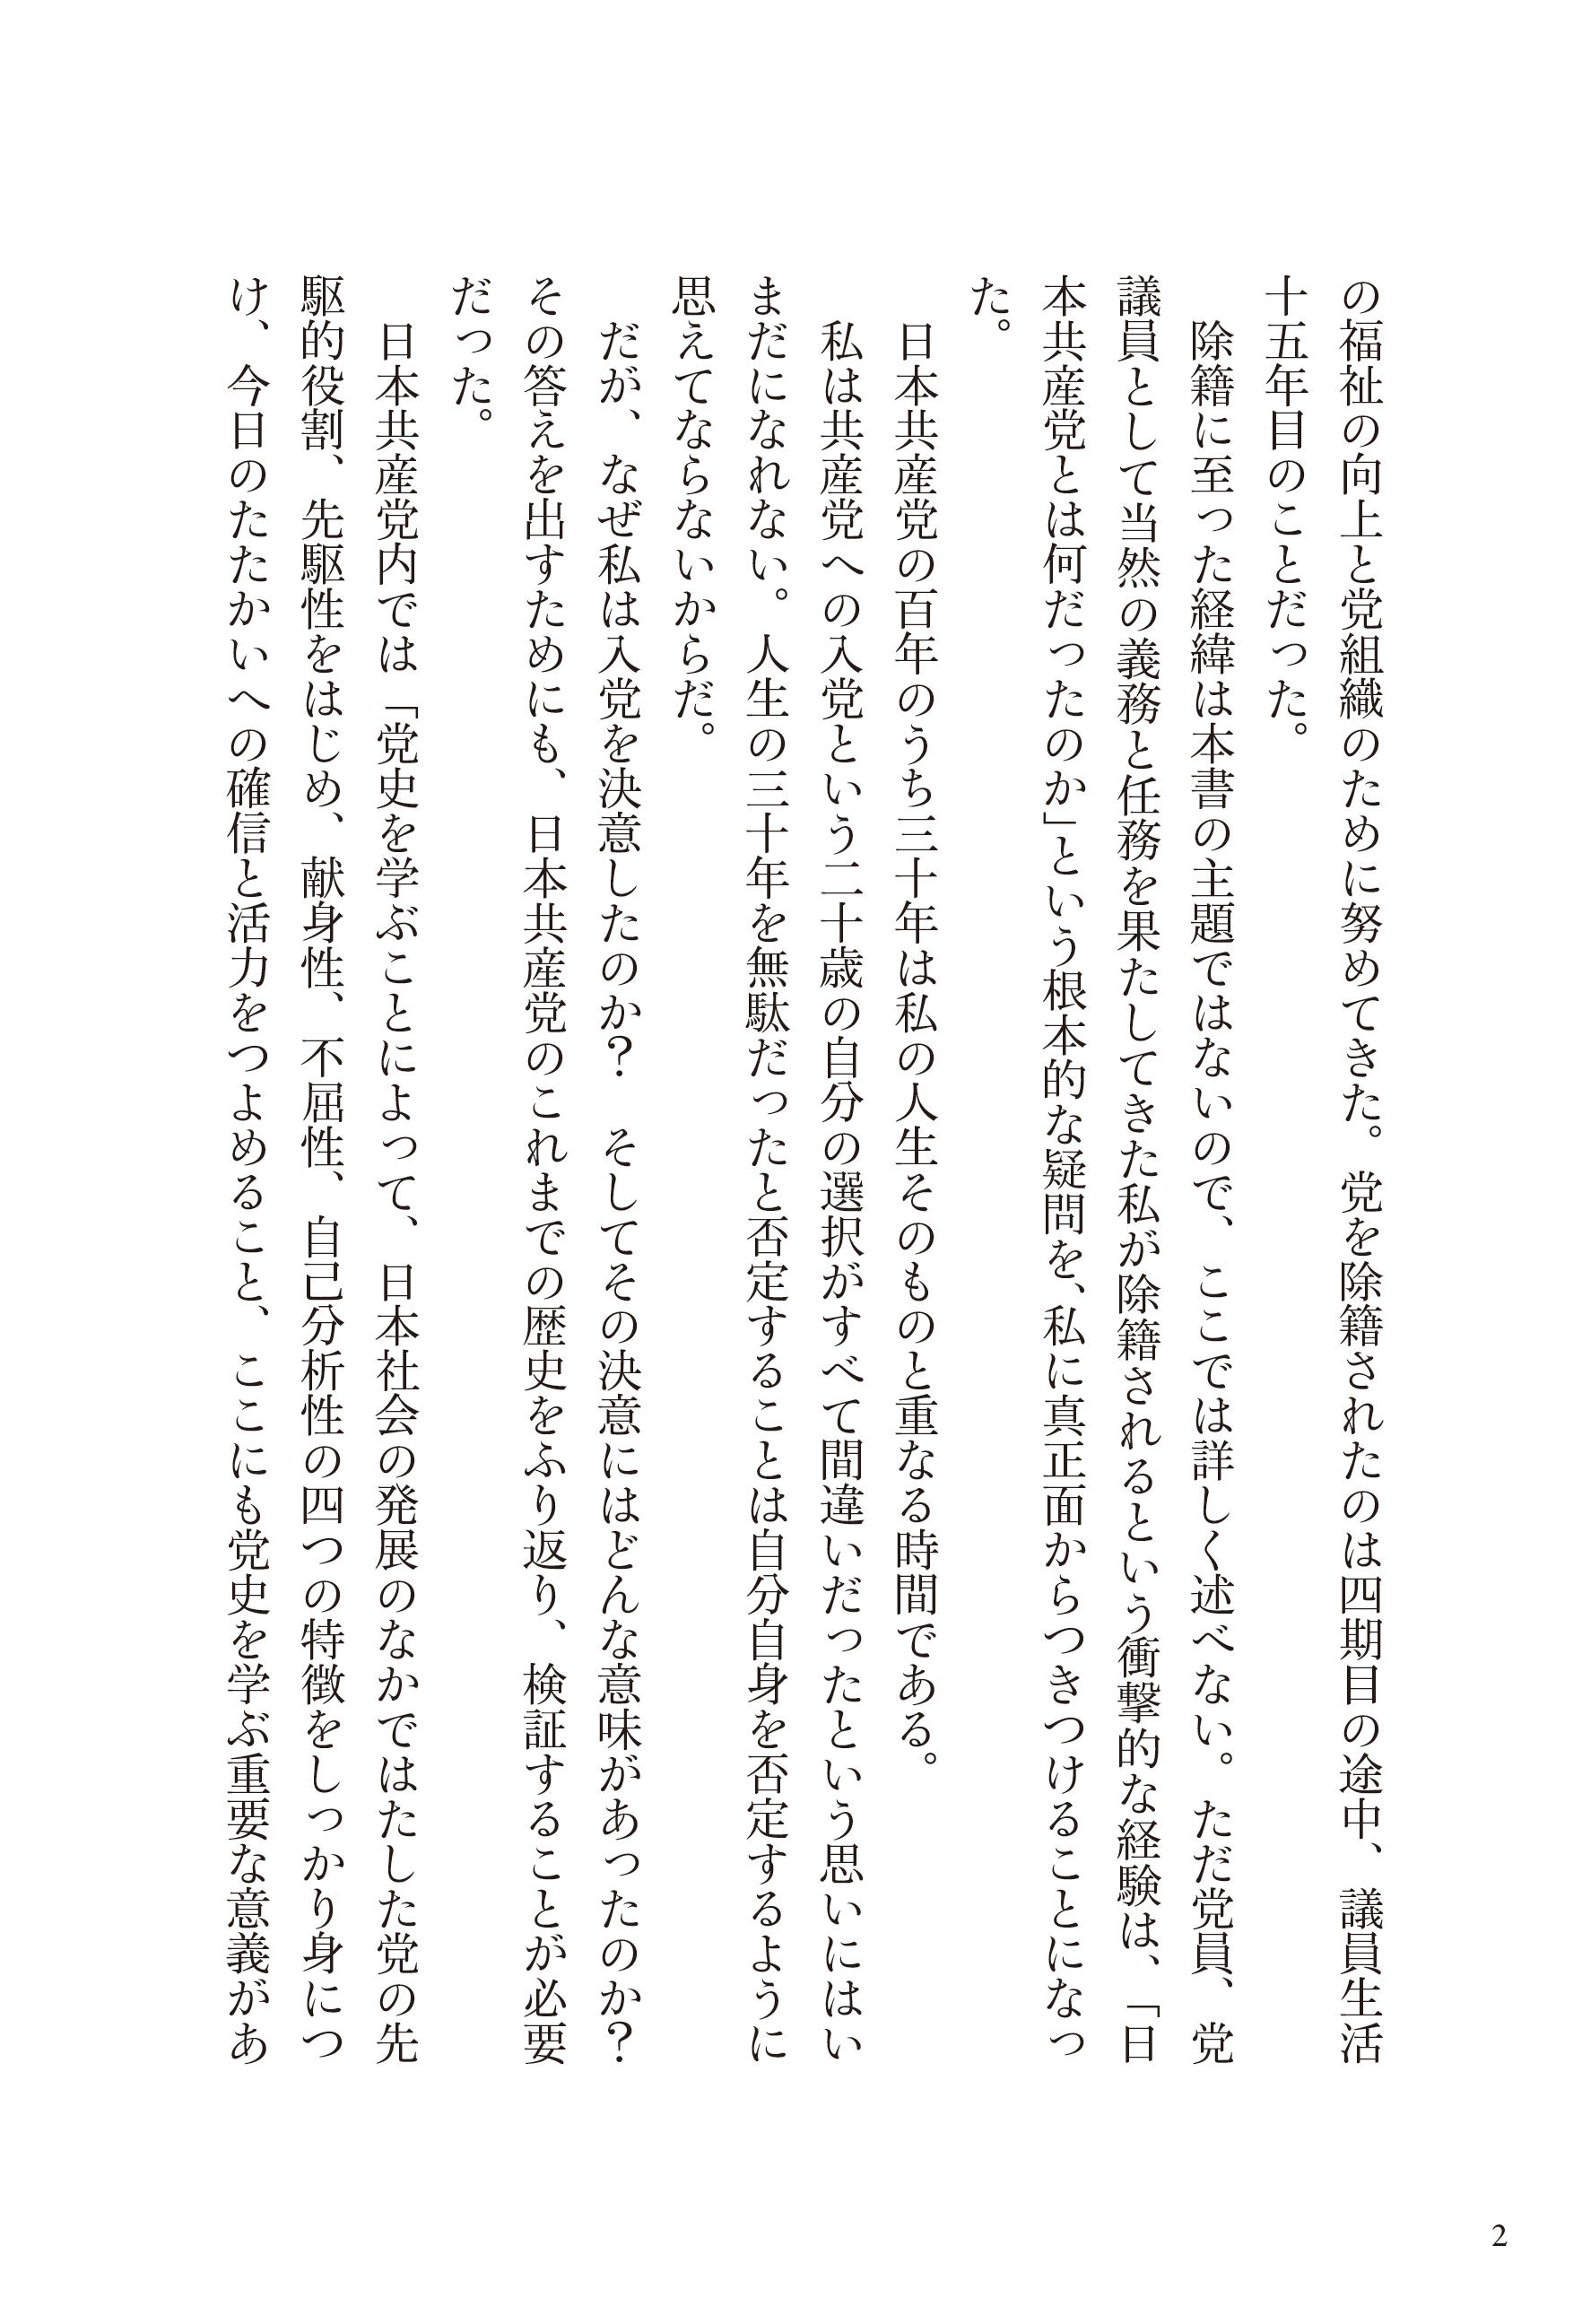 の福祉の向上と党組織のために努めてきた。党を除籍されたのは四期目の途中、議員生活
十五年目のことだった。
　除籍に至った経緯は本書の主題ではないので、ここでは詳しく述べない。ただ党員、党
議員として当然の義務と任務を果たしてきた私が除籍されるという衝撃的な経験は、「日
本共産党とは何だったのか」という根本的な疑問を、私に真正面からつきつけることになっ
た。
　日本共産党の百年のうち三十年は私の人生そのものと重なる時間である。
　私は共産党への入党という二十歳の自分の選択がすべて間違いだったという思いにはい
まだになれない。人生の三十年を無駄だったと否定することは自分自身を否定するように
思えてならないからだ。
　だが、なぜ私は入党を決意したのか？　そしてその決意にはどんな意味があったのか？
その答えを出すためにも、日本共産党のこれまでの歴史をふり返り、検証することが必要
だった。
　日本共産党内では「党史を学ぶことによって、日本社会の発展のなかではたした党の先
駆的役割、先駆性をはじめ、献身性、不屈性、自己分析性の四つの特徴をしっかり身につ
け、今日のたたかいへの確信と活力をつよめること、ここにも党史を学ぶ重要な意義があ
2